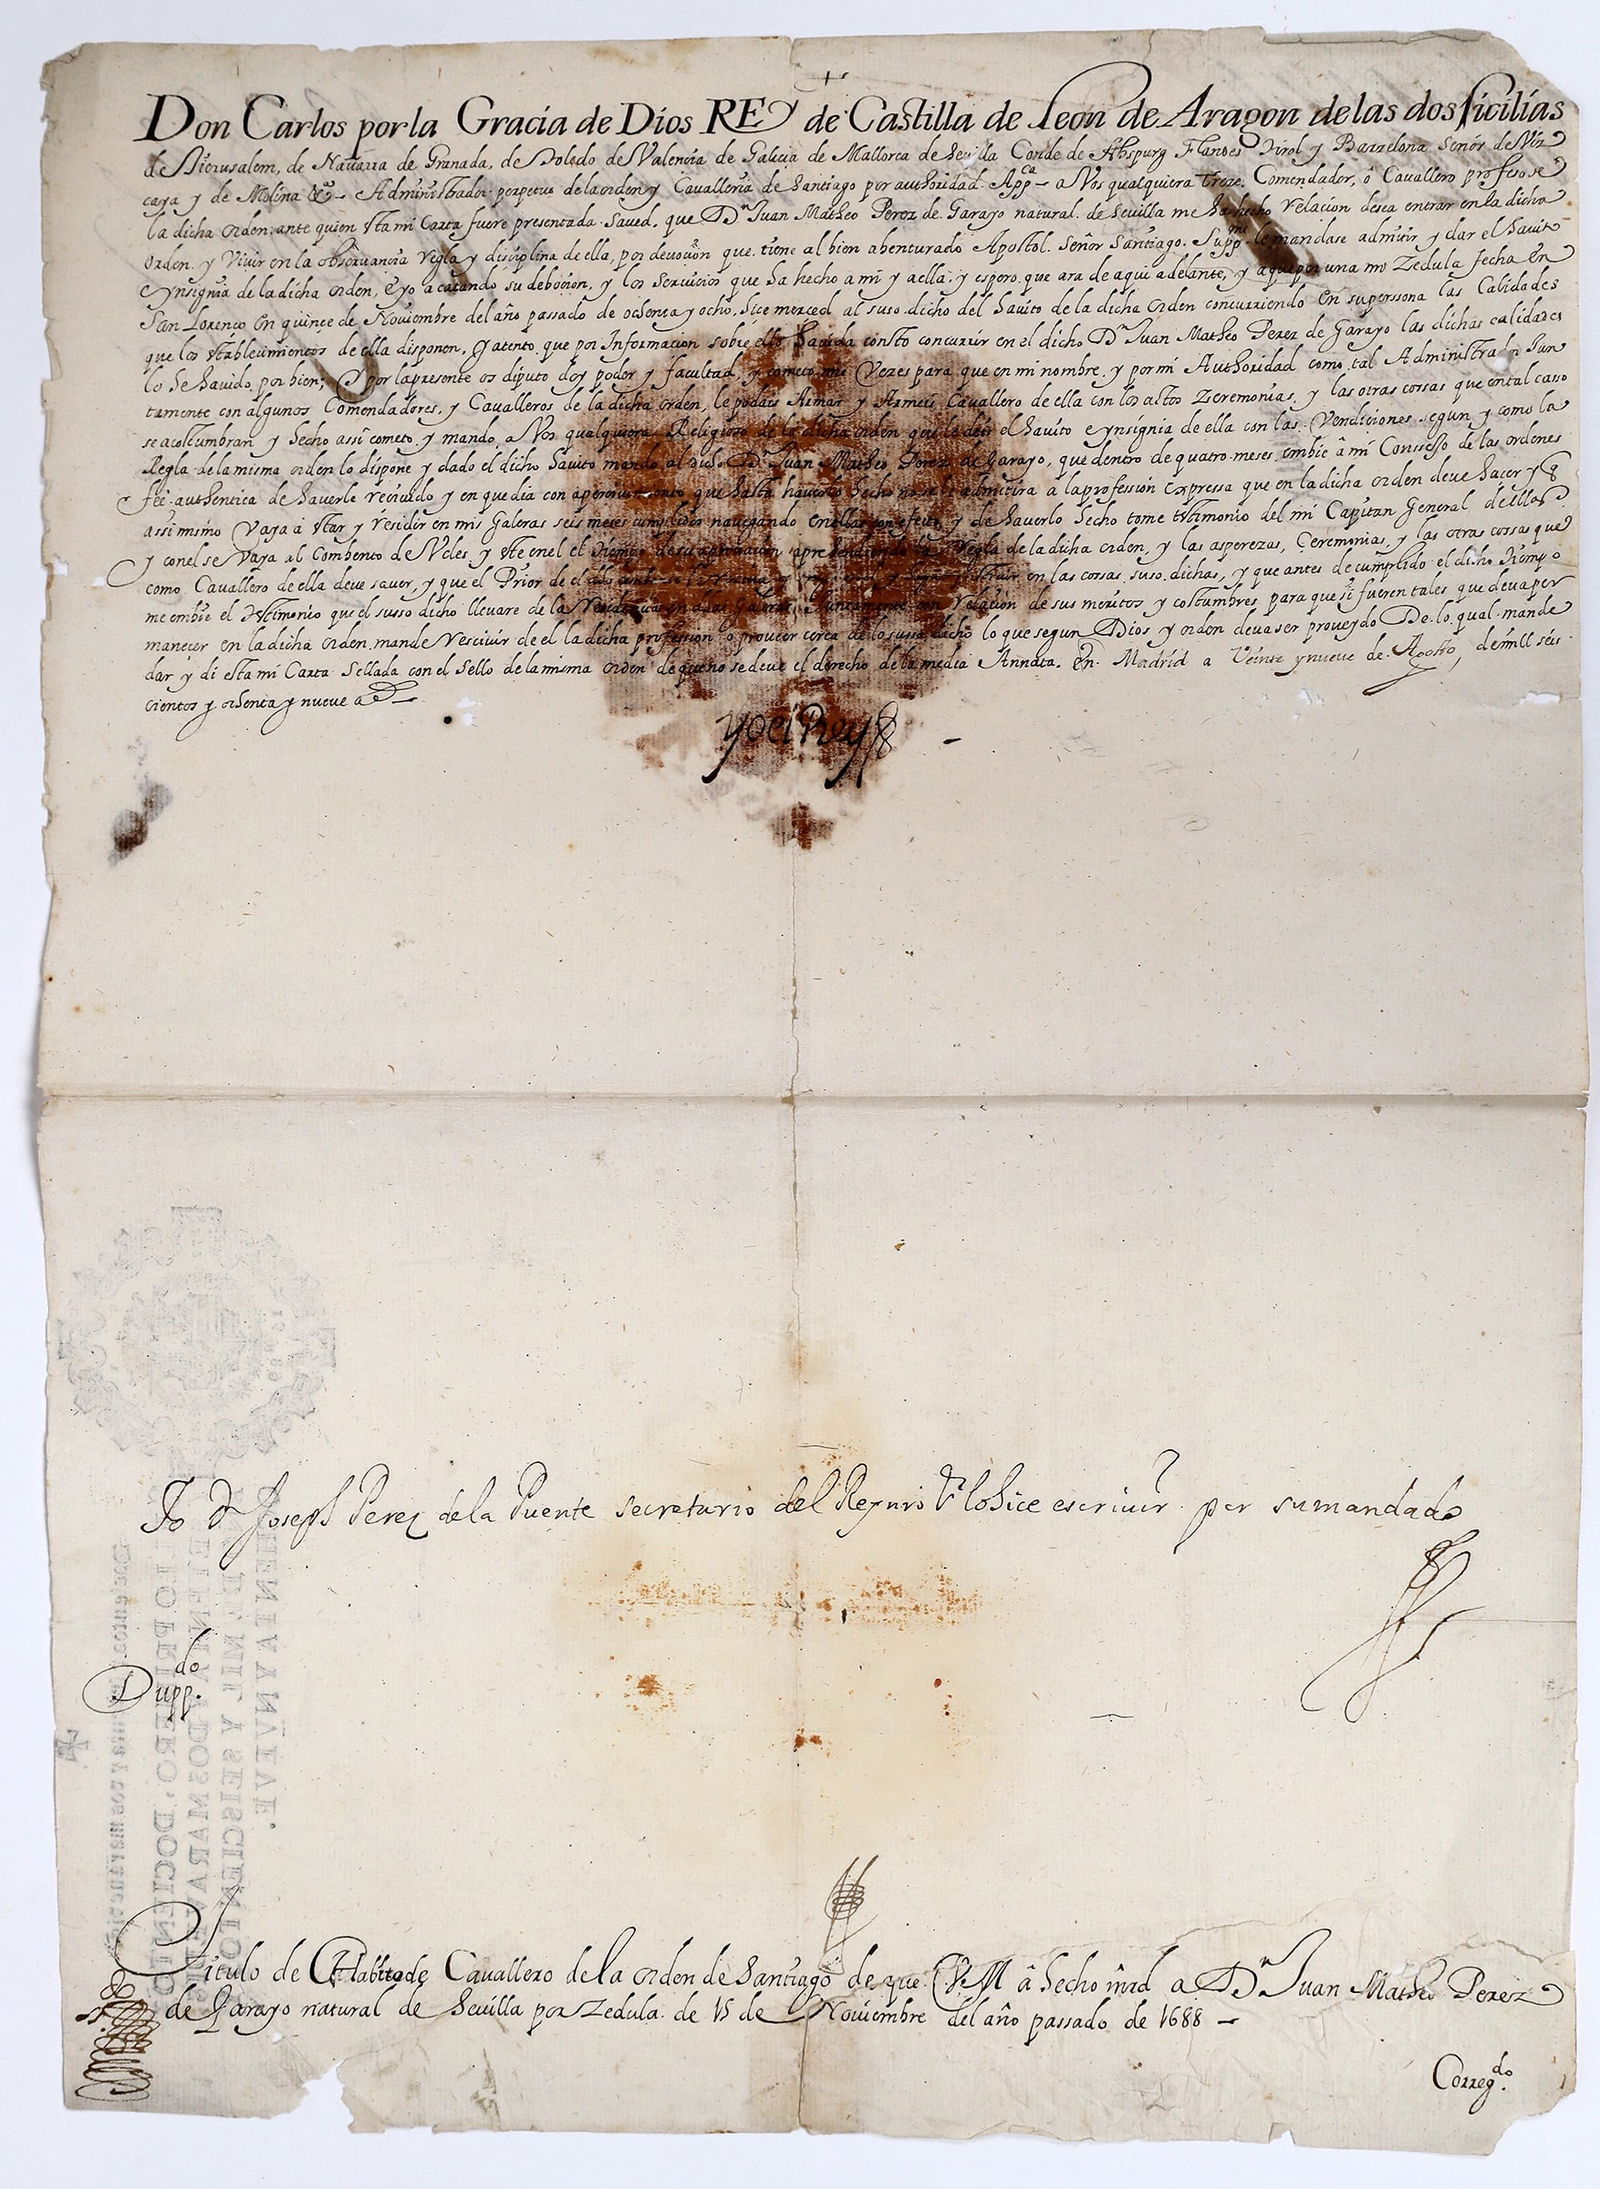 Don Carlos por la Gracia de Dios REy de Castilla de Leon de Aragon de las dos Sicilias
de Hierusalem, de Nauarra de Granada, de Toledo de Valencia de Galicia de Mallorca de Seuilla Conde de Abspurg Flandes Tirol y Barzelona Señor de Viz
caya y de Molina &ª Administrador perpetuo de la orden y Cavalleria de Santiago por authoridad Appca a Vos qualquiera Treze, Comendador, ó Cavallero profeso de
la dicha orden ante quien esta mi Carta fuere presentada. Saued, que Dn Juan Matheo Perez de Garayo natural de Seuilla me ha hecho relacion desea entrar en la dicha
orden y Viuir en la obseruancia regla y disciplina de ella, por deuoción que tiene al bien abenturado Apostol Señor Santiago. Suppme le mandase admitir y dar el hauito
e Ynsignia de la dicha orden, e yo acatando su deboción, y los seruicios que ha hecho a mi y a ella, y espero que ara de aqui adelante, y a que por una mi Zedula fecha en
San Lorenço en quinçe de Nouiembre del año passado de ochenta y ocho, hice merced al suso dicho del hauito de la dicha orden concurriendo en su perssona las Calidades
que los establecimientos de ella disponen, y atento que por Informacion sobre ello hauida consto concurrir en el dicho Dn Juan Matheo Perez de Garayo las dichas calidades
lo he hauido por bien; y por la presente os diputo doy poder y facultad, y cometo mis Vezes para que en mi nombre, y por mi Authoridad como tal Administrador Jun
tamente con algunos Comendadores, y Cavalleros de la dicha orden, le podais Armar y Armeis Cavallero de ella con los altos Zeremonias, y las otras cossas que en tal casso
se acostumbran y hecho assi cometo y mando a Vos qualquiera Religioso de la dicha orden que le deis el hauito e ynsignia de ella con las Vendiciones segun y como la
Regla de la misma orden lo dispone y dado el dicho hauito mando al dicho Dn Juan Matheo Perez de Garayo, que dentro de quatro meses embie â mi Conssejo de las ordenes
feé authentica de hauerle reciuido y en que dia con aperciuimiento que hasta hauerlo hecho no se le admitira a la profession expressa que en la dicha orden deve hacer y q
assi mismo Vaya á estar y residir en mis Galeras seis meses cumplidos nauegando en ellas con efecto y de hauerlo hecho tome testimonio del mi Capitan General de ellas
y con el se Vaya al Combento de Vcles, y este en el el tiempo de su aprouacion aprendiendo la Regla de la dicha orden, y las asperezas, Ceremonias, y las otras cossas que
como Cavallero de ella deue sauer, y que el Prior de el en las cossas suso dichas, y que antes de cumplido el dicho tiempo
me embie el testimonio que el susso dicho lleuare de la Residencia en dhas Galeras Juntamente con Relacion de sus meritos y costumbres para que si fueren tales que deua per
maneçer en la dicha orden mande resciuir de el la dicha profession ó proueer cerca de lo susso dicho lo que segun Dios y orden deua ser proueydo De lo qual mande
dar y di esta mi Carta Sellada con el Sello de la misma orden de que no se deue el derecho de la media Annata. En Madrid a Veinte y nueue de Agosto, de mill seis
cientos y ochenta y nueue aos
yo el Rey
Jo Dn Joseph Perez de la Puente secretario del Rey nro Sr lo hice escriuir por su mandado
Duppdo
Titulo de Habito de Cauallero de la orden de Santiago de que V. M â hecho mrd a Dn Juan Matheo Perez
de Garayo natural de Seuilla por Zedula de 15 de Nouiembre del año passado de 1688
Corregdo